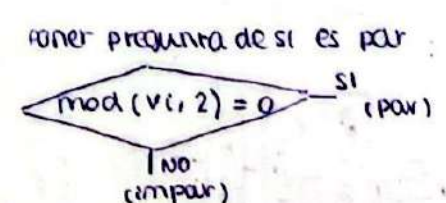 poner pregunta de si es par
mod (vi, 2) = 0
SI
(par)
NO
(impar)